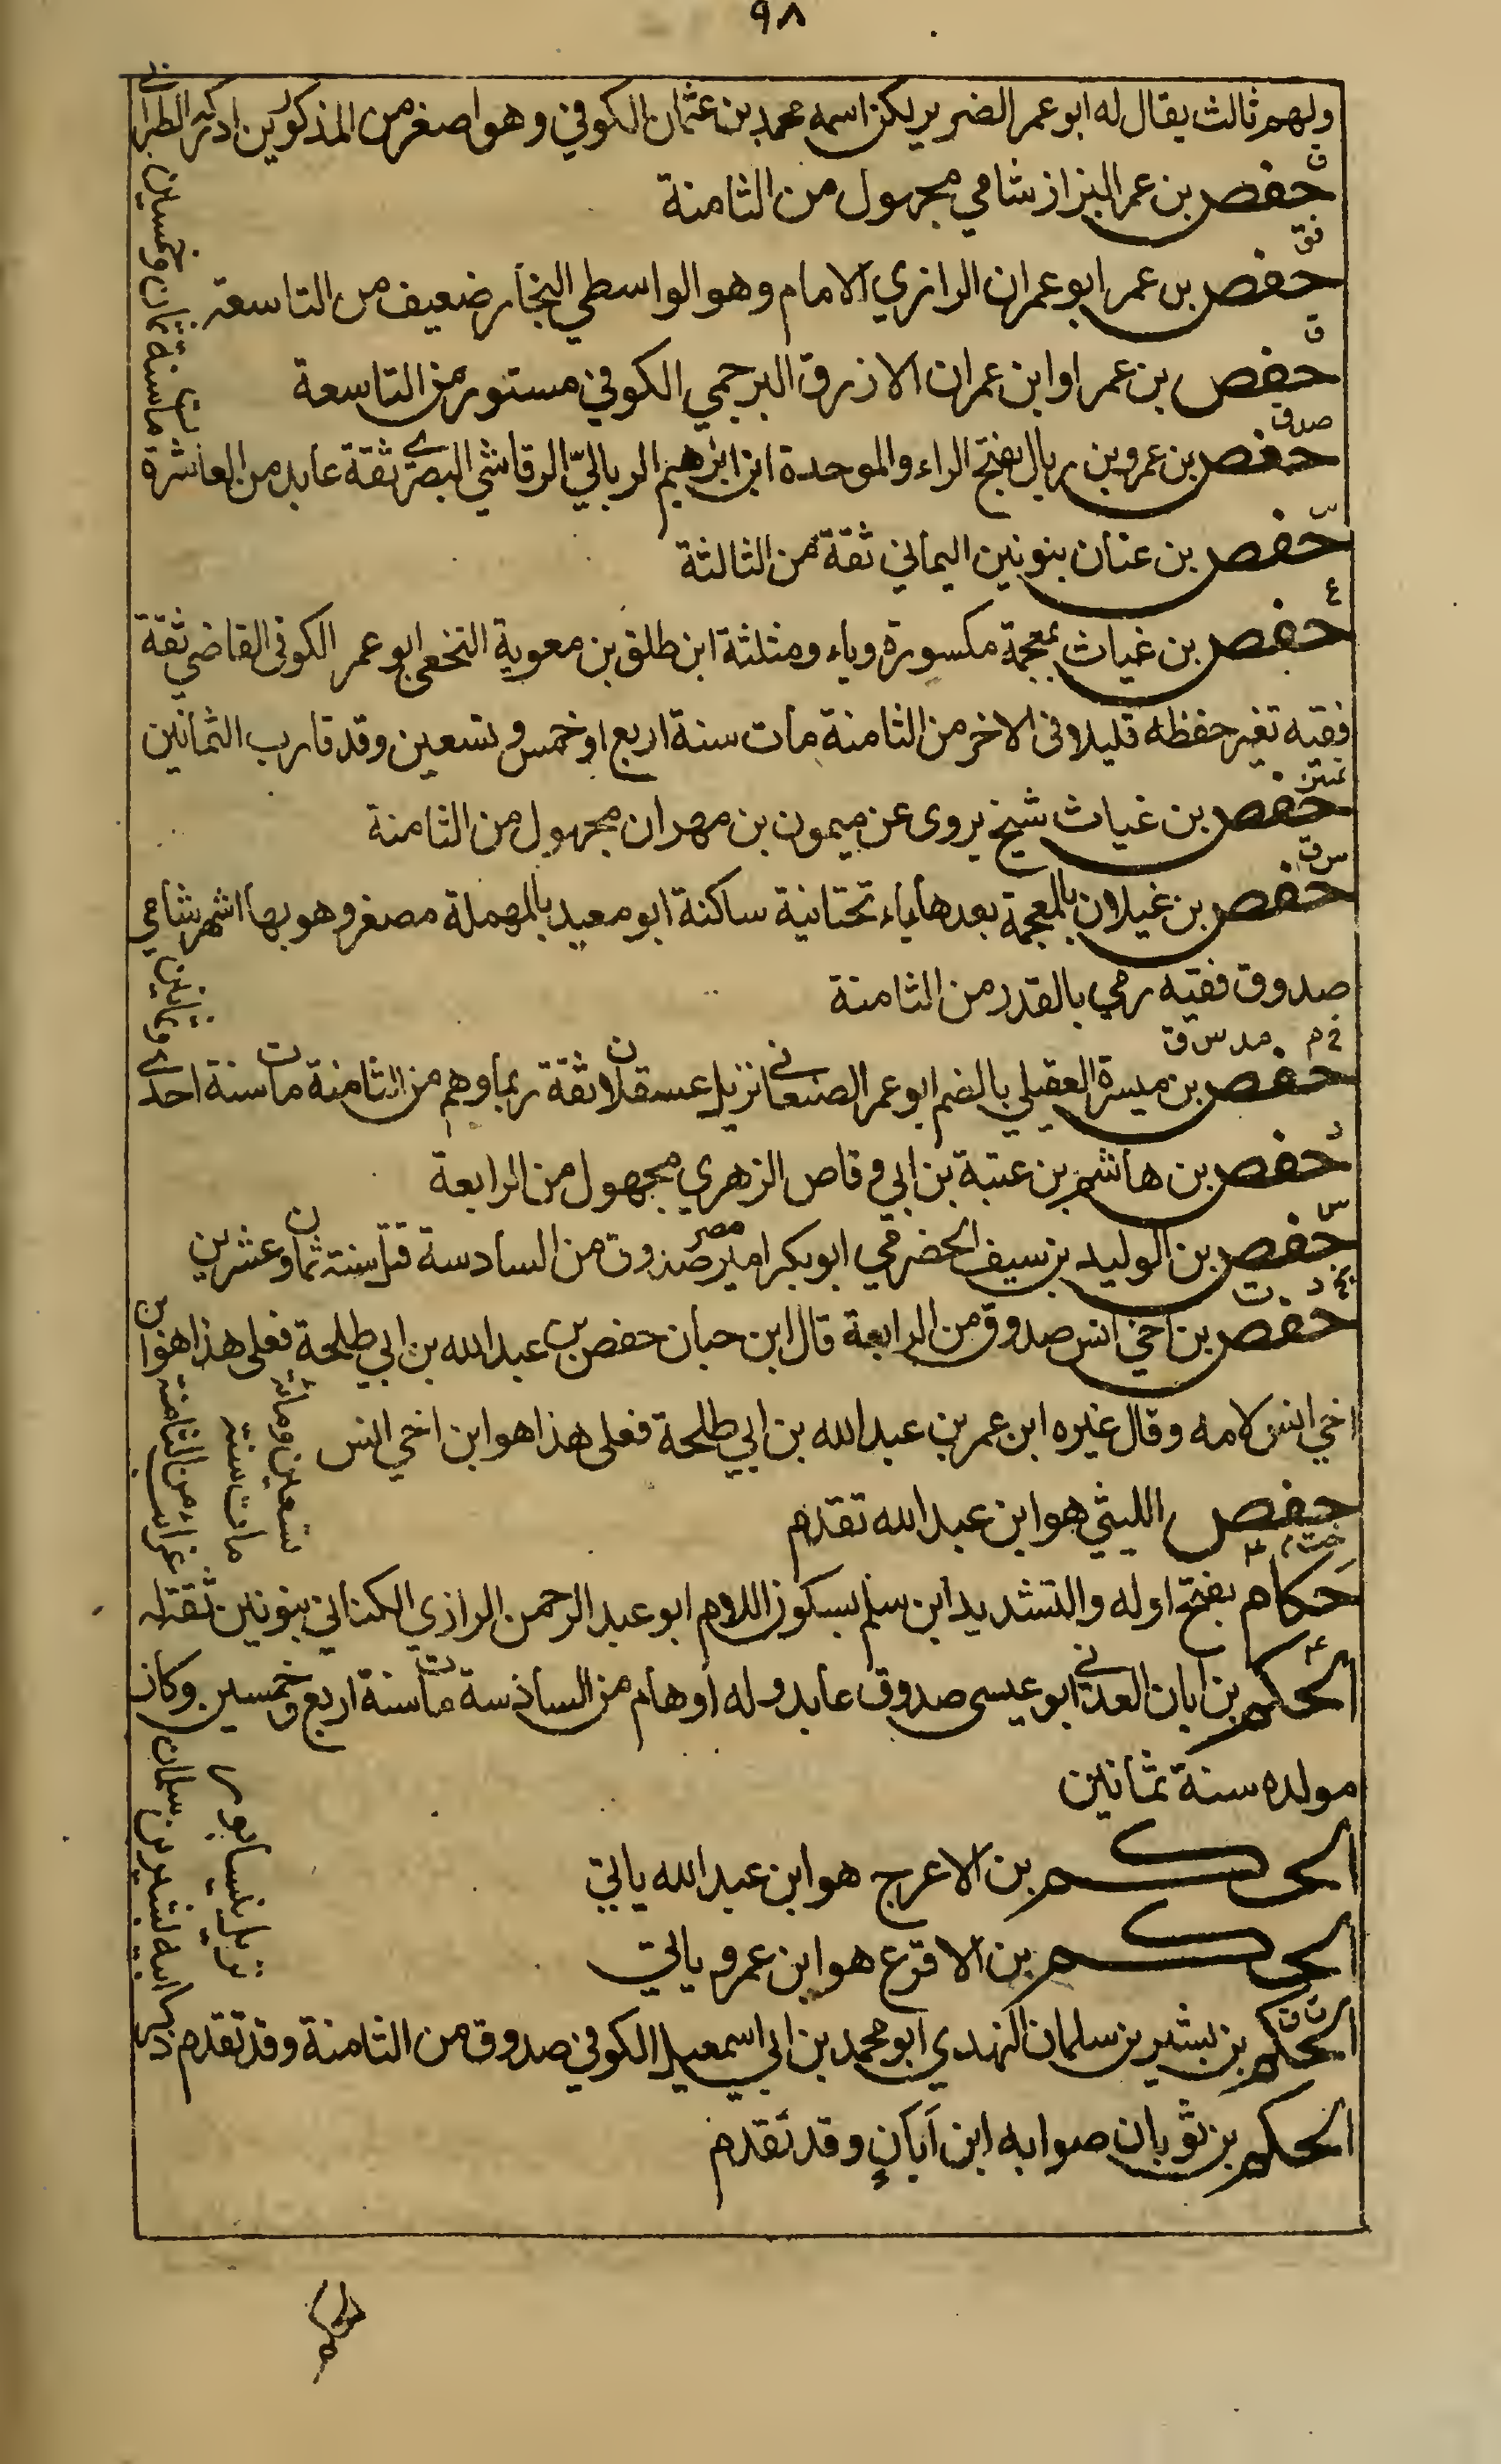 ٩٨
ولهم ثالث يقال له ابو عمر الضرير لكن اسمه محمد بن عثمان الكوفي وهو اصغر من المذكورين ذكره الطبراني
ق
حفص بن عمر البزاز شامي مجهول من الثامنة
فق
حفص بن عمر ابو عمران الرازي الامام وهو الواسطي النجار ضعيف من التاسعة
ق
حفص بن عمر او ابن عمران الازرق البرجمي الكوفي مستور من التاسعة
صدق
حفص بن عمرو بن ربال بفتح الراء والموحدة ابن ابرهيم الربالي الرقاشي البصري ثقة عابد من العاشرة
مات سنة ثمان وخمسين
س
حفص بن عنان بنونين اليماني ثقة من الثالثة
ع
حفص بن غياث بمعجمة مكسورة وياء ومثلثة ابن طلق بن معوية النخعي ابو عمر الكوفي القاضي ثقة
فقيه تغير حفظه قليلا في الاخر من الثامنة مات سنة اربع او خمس وتسعين وقد قارب الثمانين
تمييز
حفص بن غياث شيخ يروى عن ميمون بن مهران مجهول من الثامنة
س ق
حفص بن غيلان بالمعجمة بعدها ياء تحتانية ساكنة ابو معيد بالمهملة مصغر وهو بها اشهر شامي
صدوق فقيه رمي بالقدر من الثامنة
خ م مد س ق
حفص بن ميسرة العقيلي بالضم ابو عمر الصنعاني نزيل عسقلان ثقة ربما وهم من الثامنة مات سنة احدى
وثمانين
د
حفص بن هاشم بن عتبة بن ابي وقاص الزهري مجهول من الرابعة
س
حفص بن الوليد بن سيف الحضرمي ابو بكر امير مصر صدوق من السادسة قتل سنة ثمان وعشرين
بخ د ت
حفص بن اخي انس صدوق من الرابعة قال ابن حبان حفص بن عبدالله بن ابي طلحة فعلى هذا هو ابن
اخي انس لامه وقال غيره ابن عمر بن عبدالله بن ابي طلحة فعلى هذا هو ابن اخي انس
حفص الليثي هو ابن عبدالله تقدم
خت م ٤
حكام بفتح اوله والتشديد ابن سلم بسكون اللام ابو عبد الرحمن الرازي الكناني بنونين ثقة له
غرائب من الثامنة
مات سنة
تسعين ومائة
٤
الحكم بن ابان العدني ابو عيسى صدوق عابد وله اوهام من السادسة مات سنة اربع وخمسين وكان
مولده سنة ثمانين
الحكم بن الاعرج هو ابن عبدالله ياتي
الحكم بن الاقرع هو ابن عمرو ياتي
ت ق
الحكم بن بشير بن سلمان النهدي ابو محمد بن ابي اسمعيل الكوفي صدوق من الثامنة وقد تقدم ذكر
ابيه بشير بن سلمان
نزيل نيسابور
الحكم بن ثوبان صوابه ابن ابان وقد تقدم